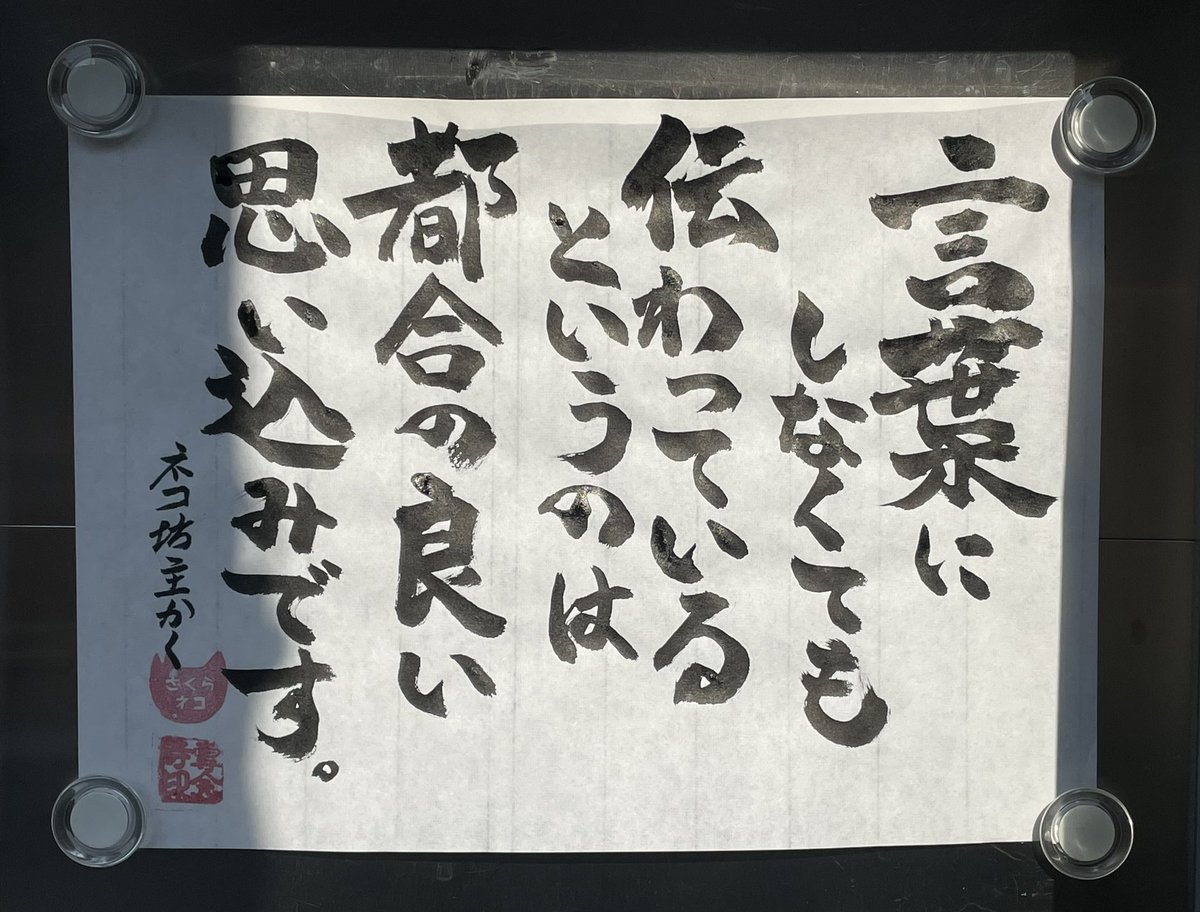 言葉に
しなくても
伝わっている
というのは
都合の良い
思い込みです。
ネコ坊主かく
さくら
ネコ